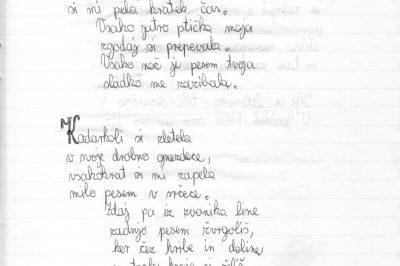 si mi pela kratek čas.
Vsako jutro ptička moja
zgodaj si prepevala
Vsako noč je pesem tvoja
sladko me zazibala.
Kadarkoli si zletela
v svoje drobno gnezdece,
vsakokrat si mi zapela
milo pesem v srčece.
Zdaj pa iz zvonika line
zadnjo pesem žvrgoliš,
ker čez hribe in doline
si želiš